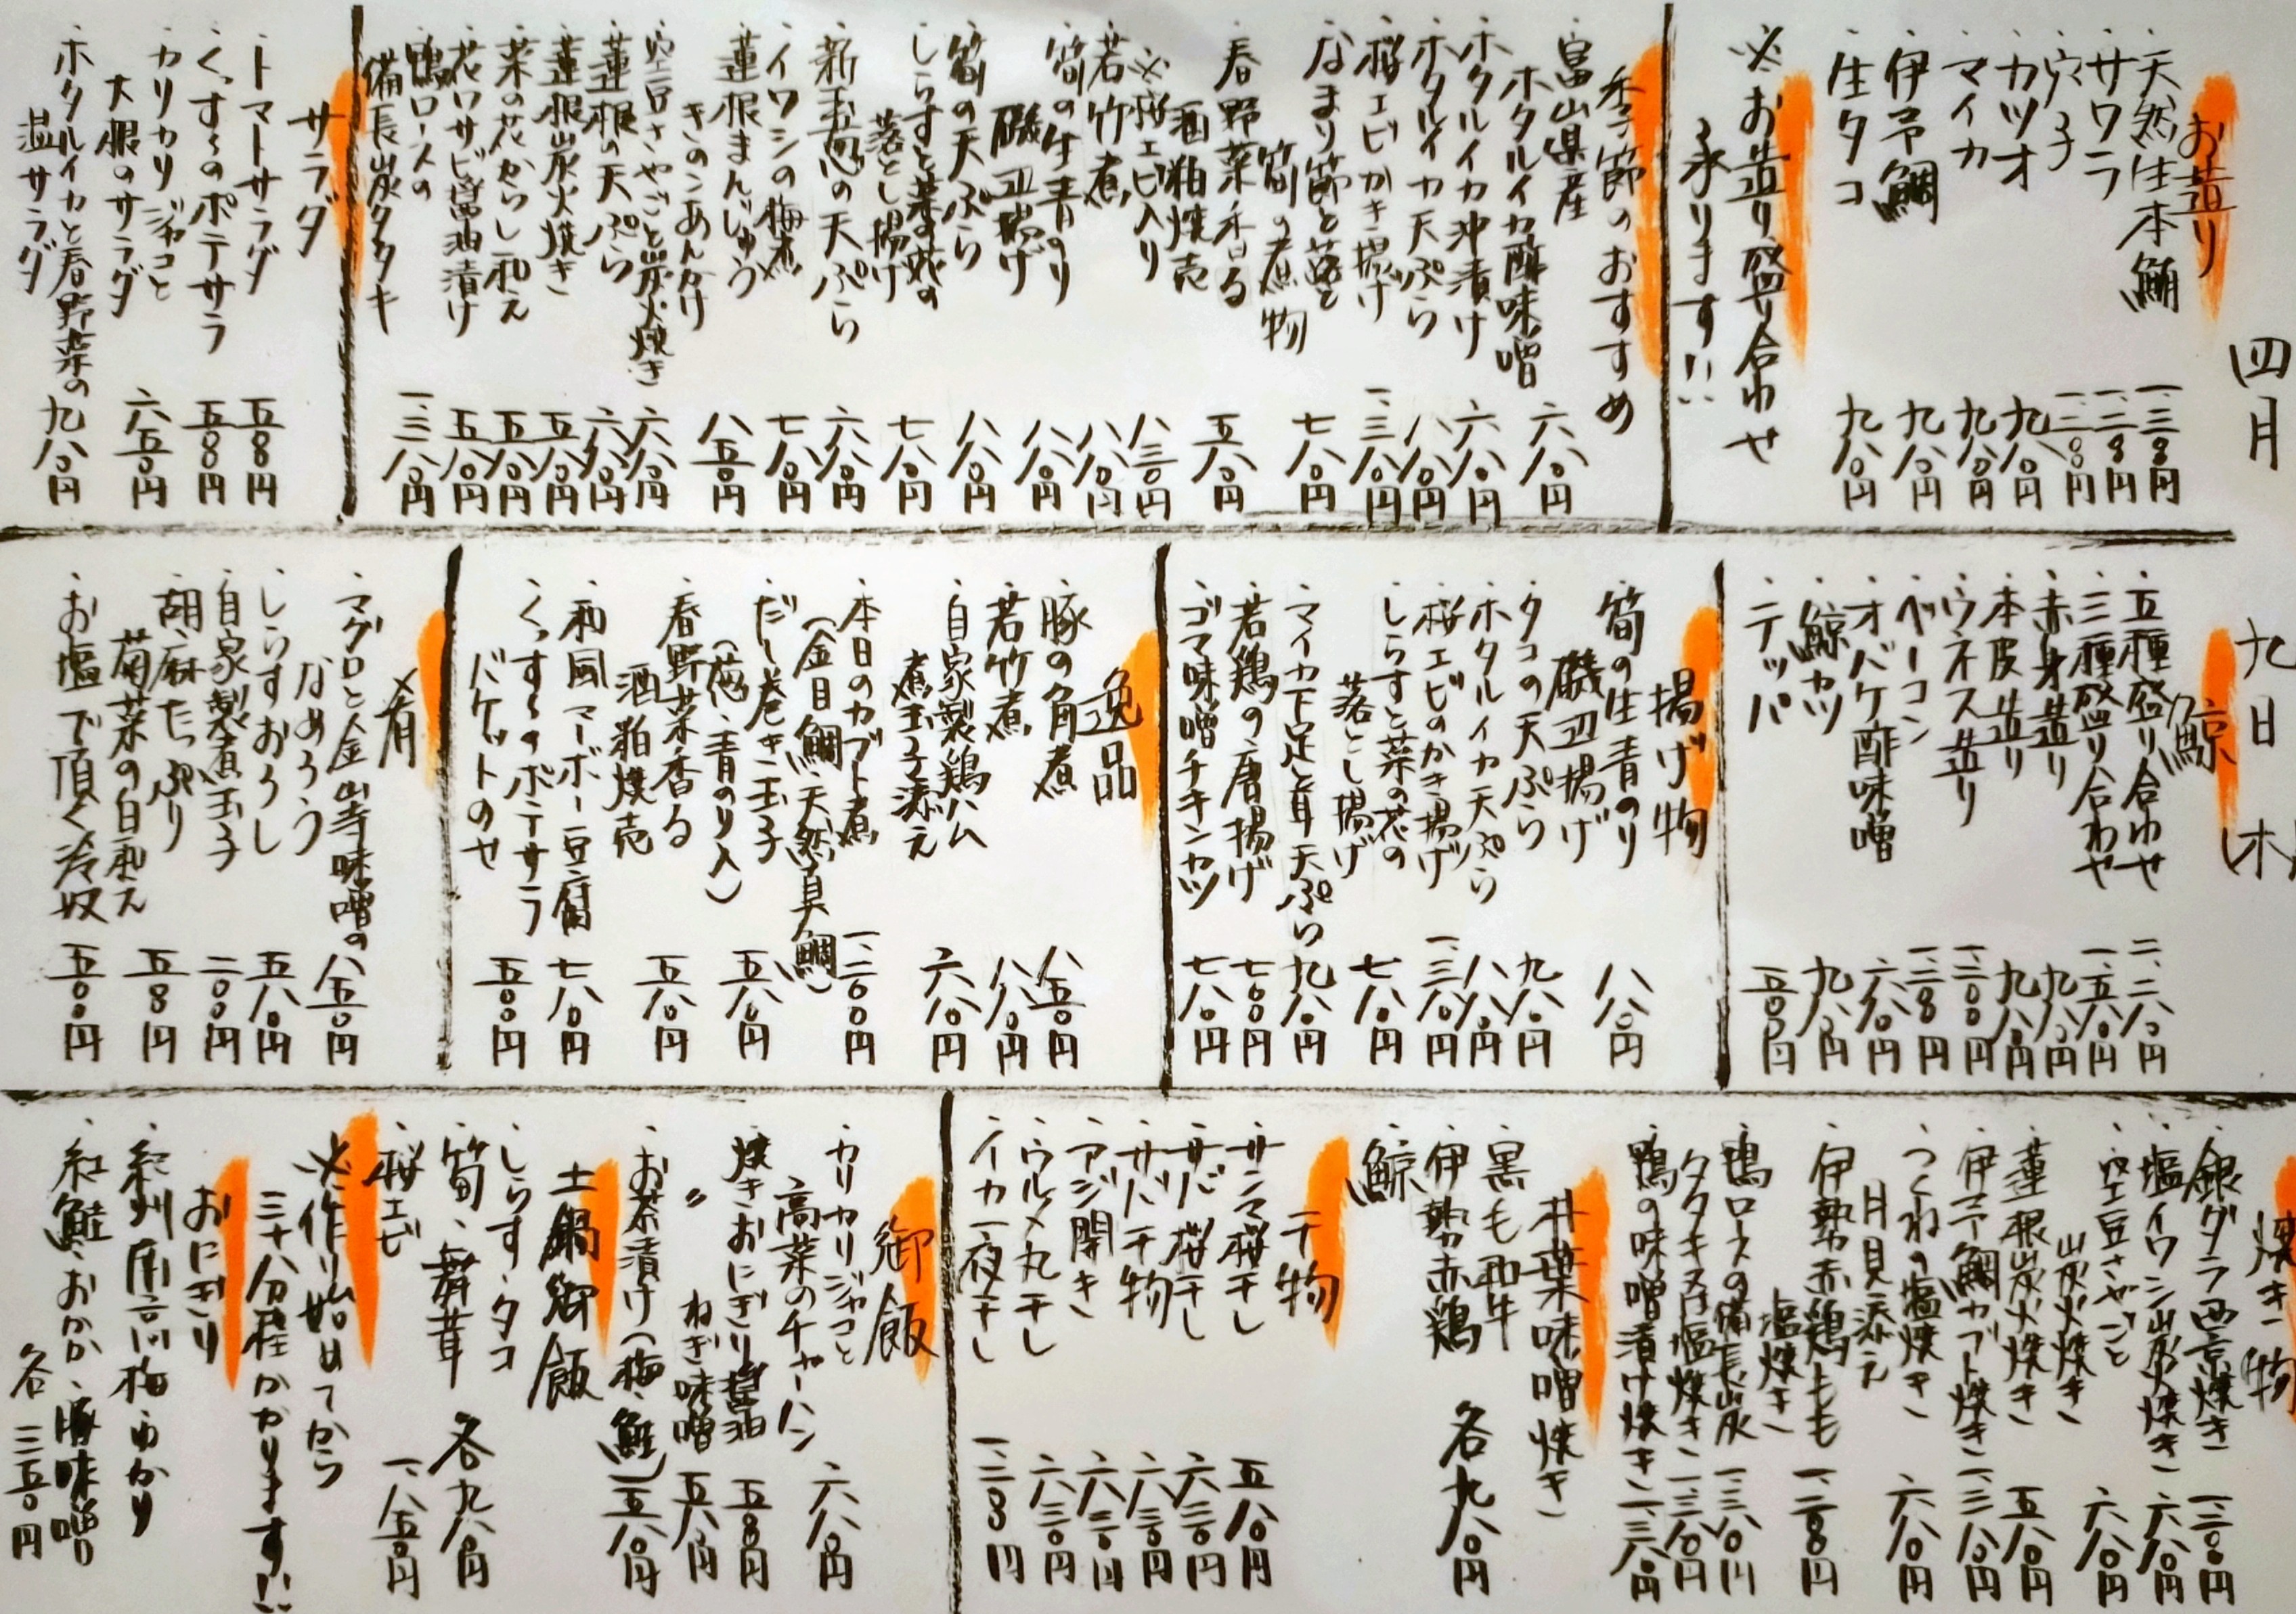 四月
九日
木
お造り
・天然生本鮪 一、三〇〇円
・サワラ 一、二〇〇円
・穴子 一、二〇〇円
・カツオ 九八〇円
・マイカ 九八〇円
・伊予鯛 九八〇円
・生タコ 九八〇円
※お造り盛り合わせ
承ります!!
季節のおすすめ
・富山県産
ホタルイカ酢味噌 六八〇円
・ホタルイカ沖漬け 六八〇円
・ホタルイカ天ぷら 八八〇円
・桜エビかき揚げ 一、三八〇円
・なまり節と蕗と
筍の煮物 七八〇円
・春野菜香る
酒粕焼売 五八〇円
※桜エビ入り 八三〇円
・若竹煮 八八〇円
・筍の生青のり
磯辺揚げ 八八〇円
・筍の天ぷら 八八〇円
・しらすと菜の花の
落とし揚げ 七八〇円
・新玉葱の天ぷら 六八〇円
・イワシの梅煮 七八〇円
・蓮根まんじゅう
きのこあんかけ 八五〇円
・空豆さやごと炭火焼き 六八〇円
・蓮根の天ぷら 六八〇円
・蓮根炭火焼き 五八〇円
・菜の花からし和え 五八〇円
・花ワサビ醤油漬け 五八〇円
・鴨ロースの
備長炭タタキ 一、三八〇円
サラダ
・トマトサラダ 五〇〇円
・くっすぅのポテサラ 五〇〇円
・カリカリジャコと
大根のサラダ 六五〇円
・ホタルイカと春野菜の
温サラダ 九八〇円
鯨
・五種盛り合わせ 二、二八〇円
・三種盛り合わせ 一、五八〇円
・赤身造り 九八〇円
・本皮造り 九八〇円
・ウネス造り 一、二〇〇円
・ベーコン 一、二〇〇円
・オバケ酢味噌 六八〇円
・鯨カツ 九八〇円
・テッパ
揚げ物
・筍の生青のり
磯辺揚げ 八八〇円
・タコの天ぷら 九八〇円
・ホタルイカ天ぷら 八八〇円
・桜エビのかき揚げ 一、三八〇円
・しらすと菜の花の
落とし揚げ 七八〇円
・マイカ下足と耳天ぷら 九八〇円
・若鶏の唐揚げ 七〇〇円
・ゴマ味噌チキンカツ 七八〇円
逸品
・豚の角煮 八五〇円
・若竹煮 八八〇円
・自家製鶏ハム
煮玉子添え 六八〇円
・本日のカブト煮 一、二〇〇円
(金目鯛・天然真鯛)
・だし巻き玉子 五八〇円
(葱・青のり入)
・春野菜香る
酒粕焼売 五八〇円
・和風マーボー豆腐 七八〇円
・くっすぅのポテサラ
バケットのせ 五〇〇円
肴
・マグロと金山寺味噌の
なめろう 八五〇円
・しらすおろし 五八〇円
・自家製煮玉子 二〇〇円
・胡麻たっぷり
菊菜の白和え 五〇〇円
・お塩で頂く冷奴 五〇〇円
焼き物
・銀ダラ西京焼き 一、三〇〇円
・塩イワシ炭火焼き 六八〇円
・空豆さやごと
炭火焼き 六八〇円
・蓮根炭火焼き 五八〇円
・伊予鯛カブト焼き 一、三八〇円
・つくねの塩焼き
月見添え 六八〇円
・伊勢赤鶏もも
塩焼き 一、二〇〇円
・鴨ロースの備長炭 一、三八〇円
タタキ・塩焼き 一、三八〇円
・鴨の味噌漬け焼き 一、三八〇円
朴葉味噌焼き
・黒毛和牛
・伊勢赤鶏
・鯨
各九八〇円
干物
・サンマ桜干し 五八〇円
・サバ桜干し 六三〇円
・サバ干物 六三〇円
・アジ開き 六三〇円
・ウルメ丸干し 六三〇円
・イカ一夜干し 一、二〇〇円
御飯
・カリカリジャコと
高菜のチャーハン 六八〇円
・焼きおにぎり醤油 五〇〇円
〃 ねぎ味噌 五八〇円
・お茶漬け(梅・鮭) 五八〇円
土鍋御飯
・しらす・タコ
・筍・舞茸 各九八〇円
・桜エビ 一、八五〇円
※作り始めてから
三十分程かかります!!
おにぎり
・紀州南高梅・ゆかり
・紅鮭・おかか・豚味噌
各三五〇円